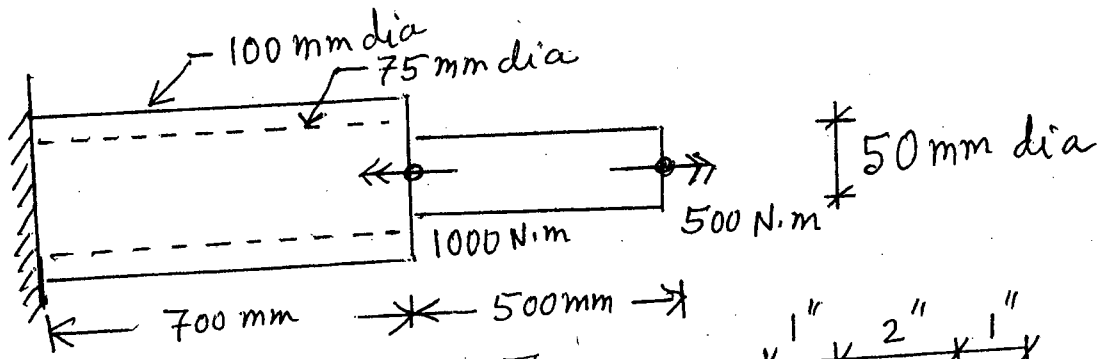 100 mm dia
75 mm dia
50 mm dia
1000 N.m
500 N.m
700 mm
500 mm
1" 2" 1"